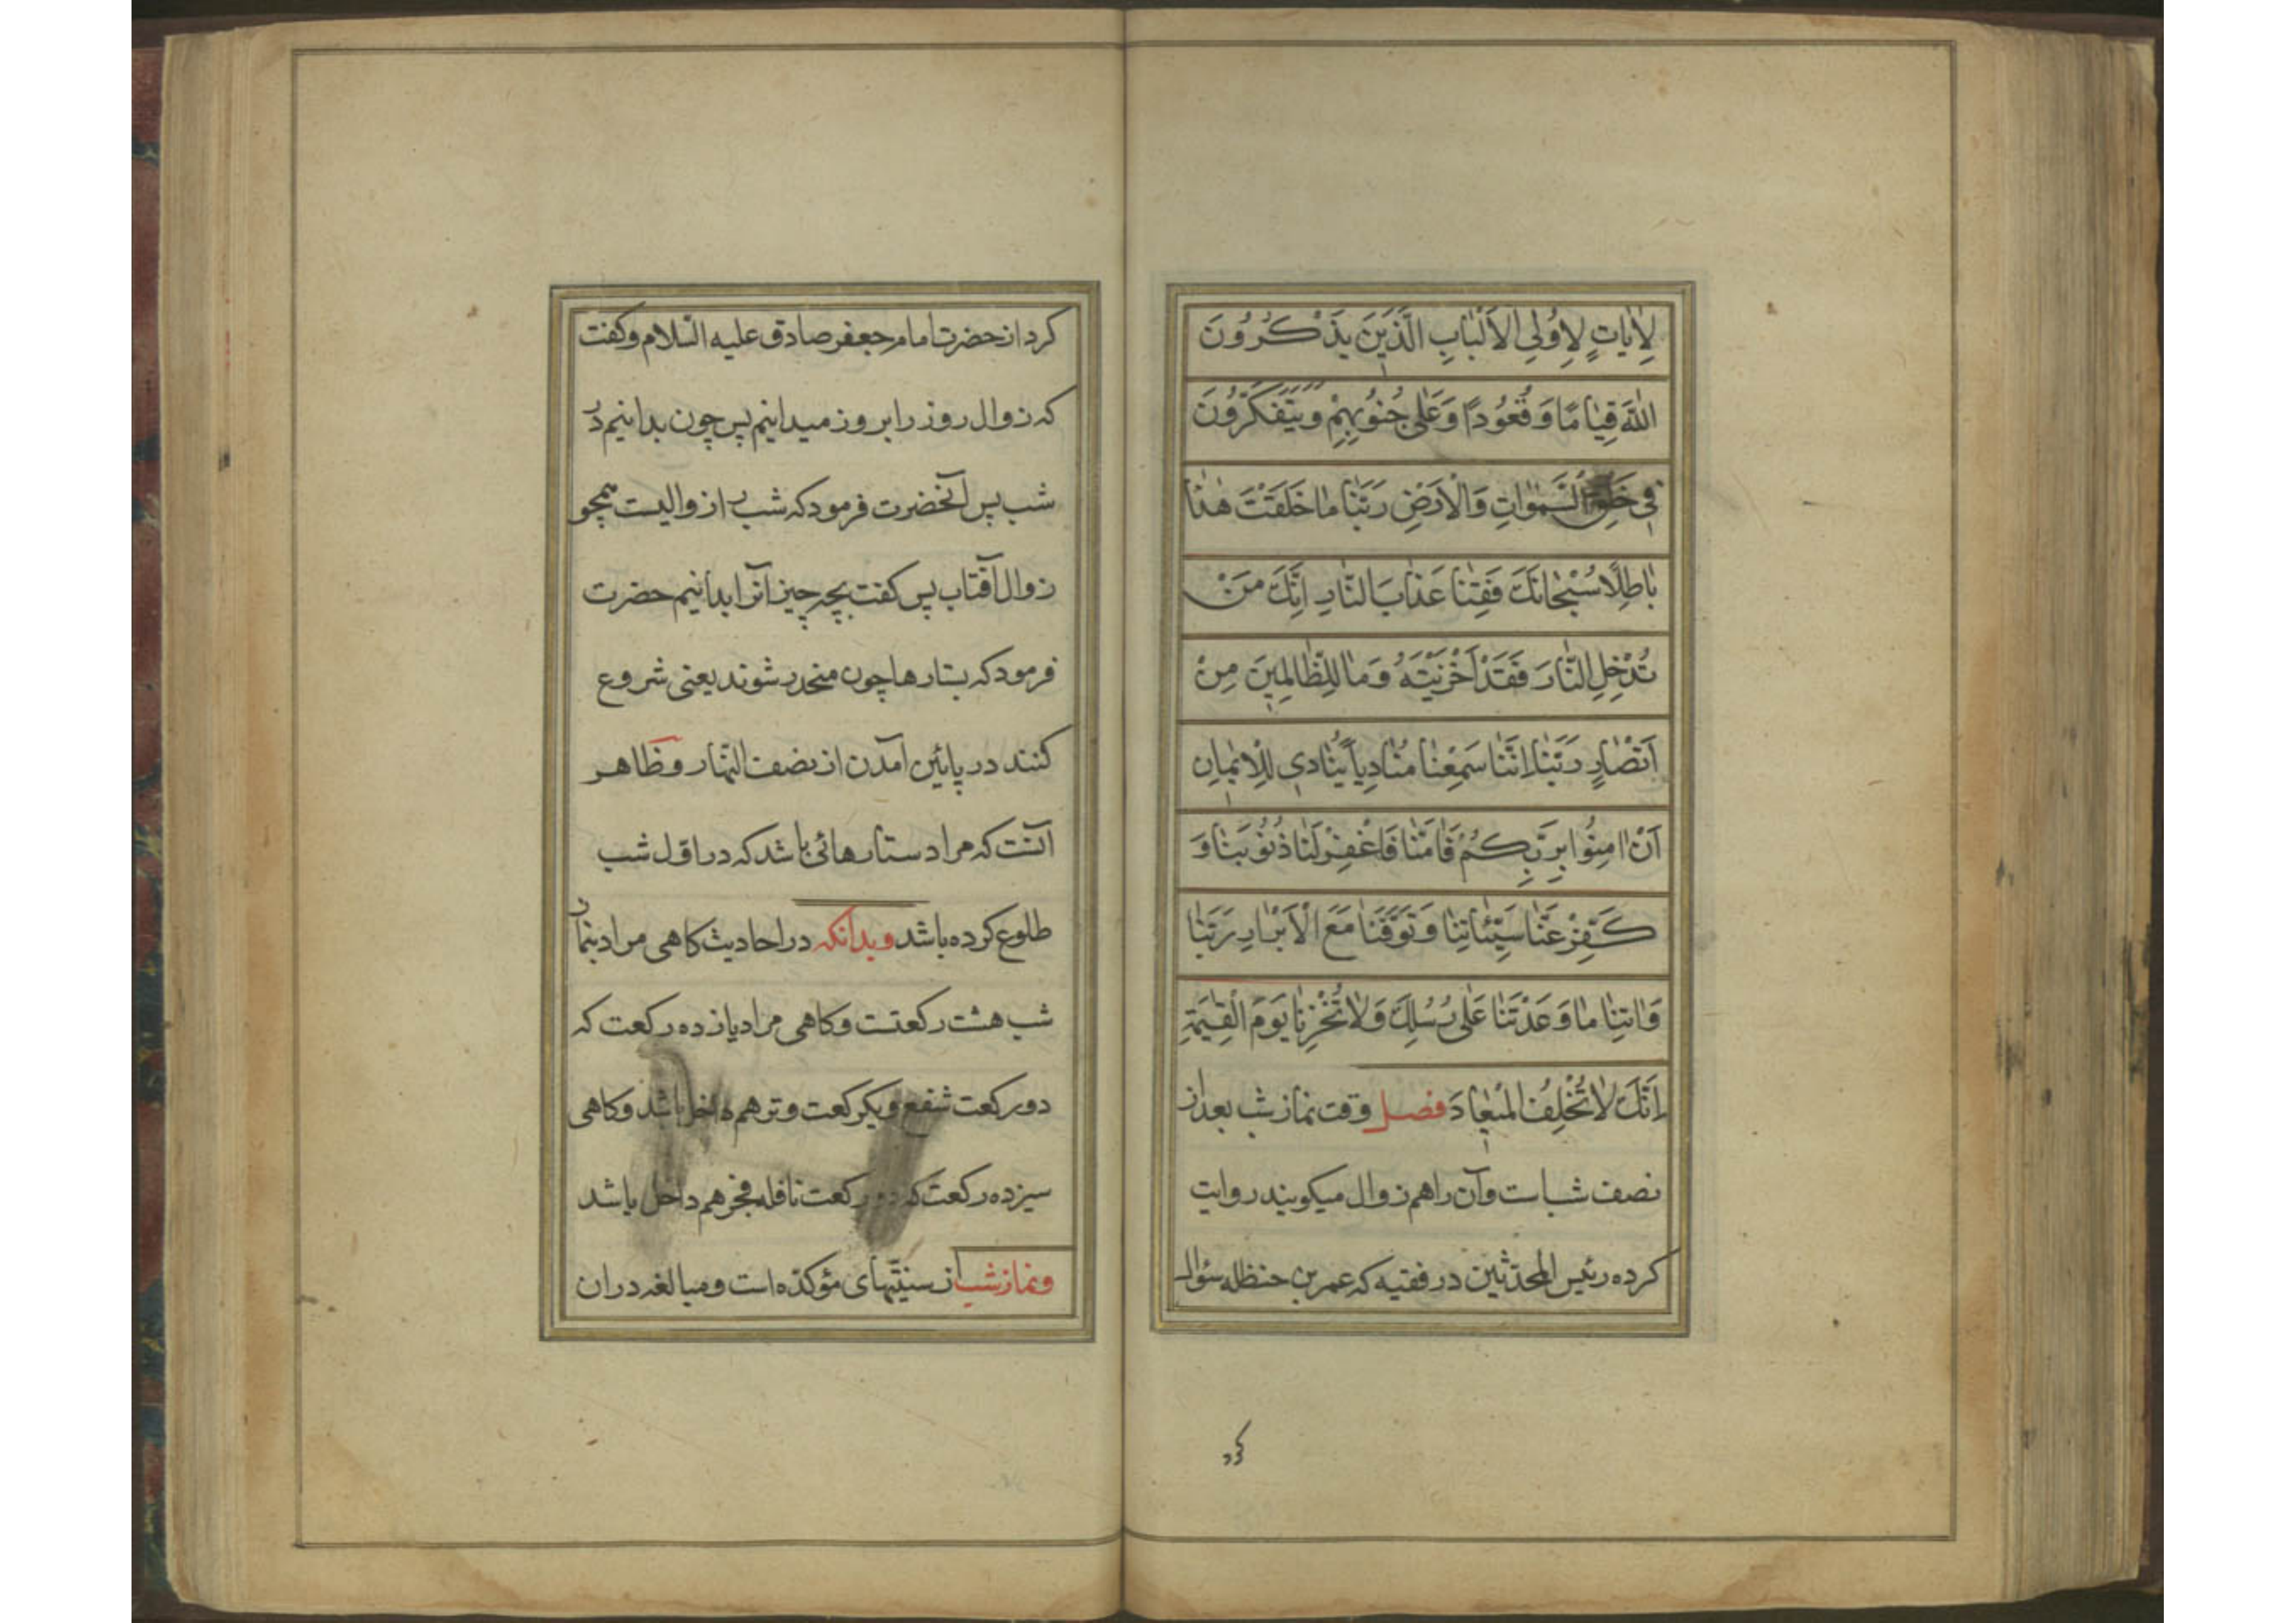 لَاٰيٰاتٍ لِاُولِي الْاَلْبٰابِ الَّذَيِنَ يَذْكُرُونَ
اللّٰهَ قِيٰامًا وَقُعُودًا وَعَلٰى جُنُوبِهِمْ وَيَتَفَكَّرُونَ
فِي خَلْقِ السَّمٰوٰاتِ وَالْاَرْضِ رَبَّنٰا مٰا خَلَقْتَ هٰذٰا
بٰاطِلًا سُبْحٰانَكَ فَقِنٰا عَذٰابَ النّٰارِ اِنَّكَ مَنْ
تُدْخِلِ النّٰارَ فَقَدْ اَخْزَيْتَهُ وَمٰا لِلظّٰالِمِينَ مِنْ
اَنْصٰارٍ رَبَّنٰا اِنَّنٰا سَمِعْنٰا مُنٰادِياً يُنٰادي لِلْاِيمٰانِ
اَنْ اٰمِنُوا بِرَبِّكُمْ فَاٰمَنّٰا فَاغْفِرْ لَنٰا ذُنُوبَنٰا وَ
كَفِّرْ عَنّٰا سَيِّئٰاتِنٰا وَتَوَفَّنٰا مَعَ الْاَبْرٰارِ رَبَّنٰا
وَاٰتِنٰا مٰا وَعَدْتَنٰا عَلٰى رُسُلِكَ وَلٰا تُخْزِنٰا يَوْمَ الْقِيٰمَةِ
اِنَّكَ لٰا تُخْلِفُ الْمٖيعٰادَ فصل وقت نماز شب بعد از
نصف شب است وآن را هم زوال میکویند روایت
کرده رئیس المحدّثین در فقیه که عمر بن حنظله سؤال
کرد
کرد از حضرت امام جعفر صادق علیه السّلام وکفت
که زوال روز را بروز میدانیم پس چون بدانیم در
شب پس آنحضرت فرمود که شب را زوالیست همچو
زوال آفتاب پس کفت بچه چیز آنرا بدانیم حضرت
فرمود که بستارها چون منحدر شوند یعنی شروع
کنند در پائین آمدن از نصف النّهار و ظاهر
آنست که مراد ستارهائی باشد که در اوّل شب
طلوع کرده باشد وبدانکه در احادیث کاهی مراد بنماز
شب هشت رکعتست وکاهی مراد یازده رکعت که
دو رکعت شفع ویکرکعت وتر هم داخل باشد وکاهی
سیزده رکعت که دو رکعت نافله فجر هم داخل باشد
ونماز شب از سنّتیهای مؤکّده است ومبالغه در ان